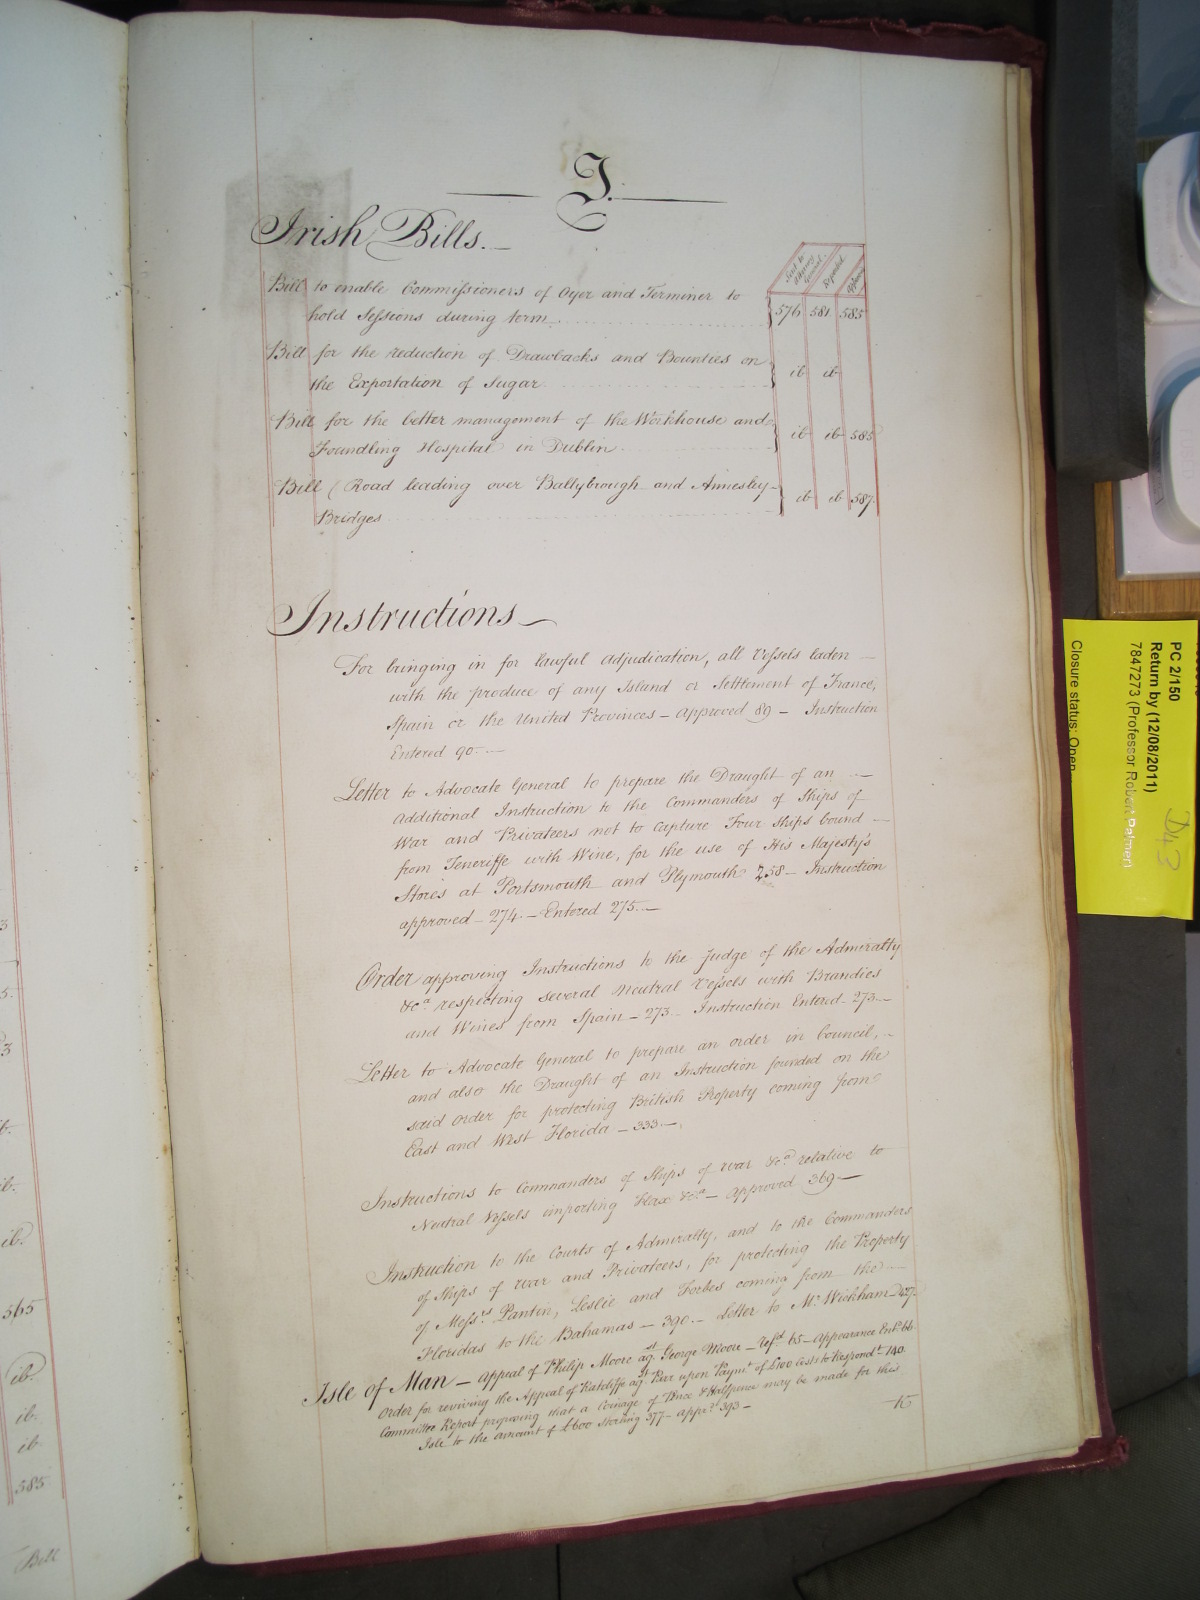 I.
Irish Bills.
Sent to Attorney General. Reported. Approved
Bill to enable Commissioners of Oyer and Terminer to
hold Sessions during term 576 581 585
Bill for the reduction of Drawbacks and Bounties on
the Exportation of Sugar ib ib
Bill for the better management of the Workhouse and
Foundling Hospital in Dublin ib ib 585
Bill (Road leading over Ballybrough and Annesley
Bridges ib ib 587
Instructions
For bringing in for lawful adjudication, all Vessels laden
with the produce of any Island or Settlement of France,
Spain or the United Provinces - Approved 89 - Instruction
Entered 90
Letter to Advocate General to prepare the Draught of an
additional Instruction to the Commanders of Ships of
War and Privateers not to capture Four Ships bound
from Teneriffe with Wine, for the use of His Majesty's
Stores at Portsmouth and Plymouth 258 - Instruction
approved - 274 - Entered 275
Order approving Instructions to the Judge of the Admiralty
&ca respecting several Neutral Vessels with Brandies
and Wines from Spain - 273 - Instruction Entered - 273
Letter to Advocate General to prepare an order in Council,
and also the Draught of an Instruction founded on the
said order for protecting British Property coming from
East and West Florida - 333
Instructions to Commanders of Ships of War &ca relative to
Neutral Vessels importing Flax &ca - Approved 369
Instruction to the Courts of Admiralty, and to the Commanders
of Ships of War and Privateers, for protecting the Property
of Messrs Pantin, Leslie and Forbes coming from the
Floridas to the Bahamas - 390 - Letter to Mr Wickham 427
Isle of Man - Appeal of Philip Moore agst George Moore - Refd 65 - Appearance Entd 66
Order for reviving the Appeal of Ratcliffe agst Bur upon Paymt of £100 Costs to Respondt 140
Committee Report proposing that a Coinage of Pence & Halfpence may be made for this
Isle to the amount of £600 Sterling 377 - Appd 393
K
3
5
3
ib.
ib.
ib.
565
ib.
ib.
ib
585
Bill
PC 2/150
Return by (12/08/2011)
7847273 (Professor Robert Palmer)
Closure status: Open
D43